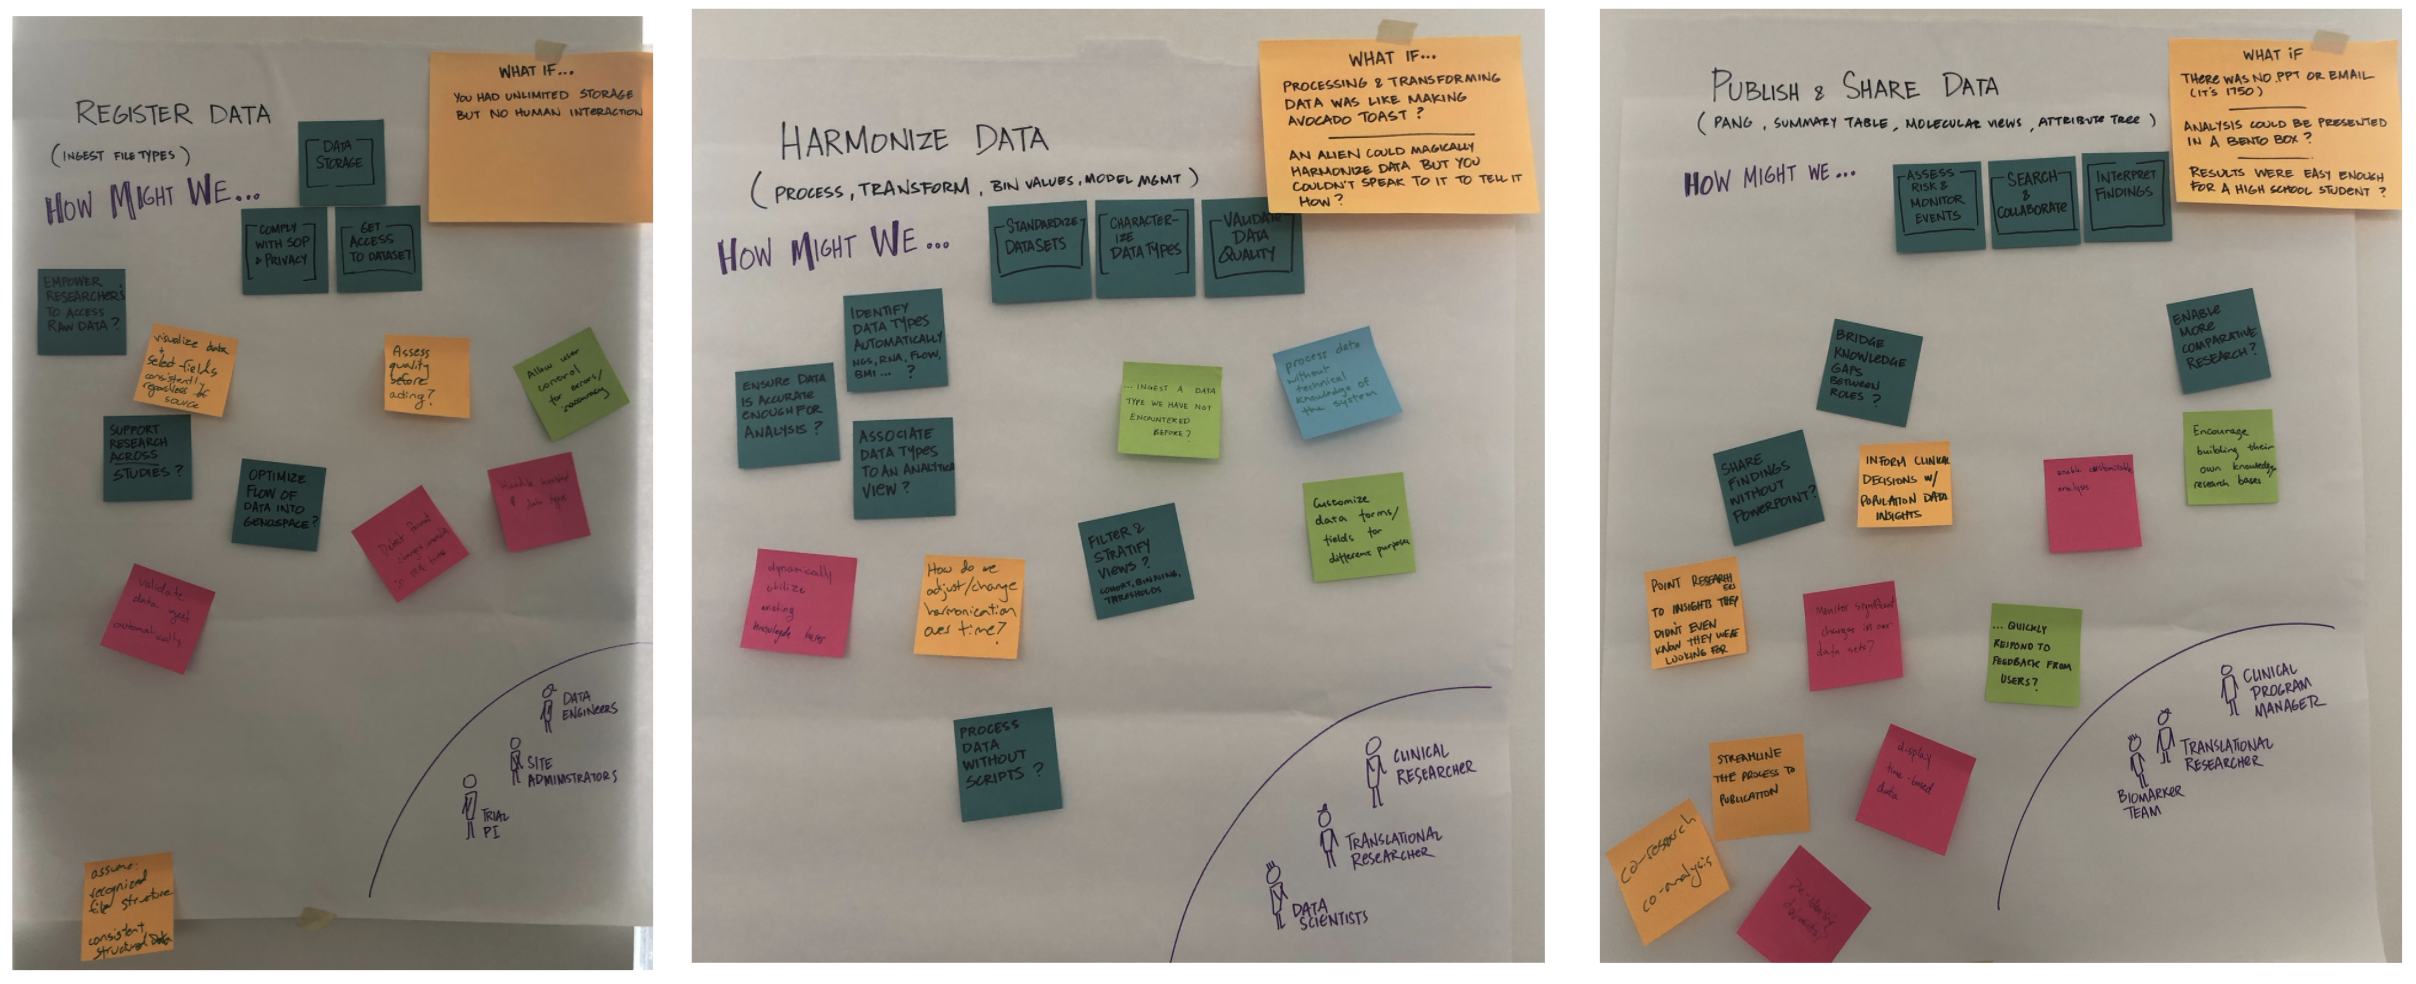 REGISTER DATA
(INGEST FILE TYPES)
HOW MIGHT WE...
WHAT IF...
YOU HAD UNLIMITED STORAGE
BUT NO HUMAN INTERACTION
DATA
STORAGE
COMPLY
WITH SOP
& PRIVACY
GET
ACCESS
TO DATASET
EMPOWER
RESEARCHERS
TO ACCESS
RAW DATA?
visualize data
+
select fields
consistently
regardless of
source
Assess
quality
before
acting?
Allow user
control
for errors/
SUPPORT
RESEARCH
ACROSS
STUDIES?
OPTIMIZE
FLOW OF
DATA INTO
GENOSPACE?
Detect format
in real time
& data type
validate
data ingest
automatically
DATA
ENGINEERS
SITE
ADMINISTRATORS
TRIAL
PI
assume:
recognized
file structure
consistent
structured data
HARMONIZE DATA
(PROCESS, TRANSFORM, BIN VALUES, MODEL MGMT)
HOW MIGHT WE...
WHAT IF...
PROCESSING & TRANSFORMING
DATA WAS LIKE MAKING
AVOCADO TOAST?
AN ALIEN COULD MAGICALLY
HARMONIZE DATA BUT YOU
COULDN'T SPEAK TO IT TO TELL IT
HOW?
STANDARDIZE
DATASETS
CHARACTER-
IZE
DATA TYPES
VALIDATE
DATA
QUALITY
IDENTIFY
DATA TYPES
AUTOMATICALLY
NGS, RNA, FLOW,
BMI... ?
ENSURE DATA
IS ACCURATE
ENOUGH FOR
ANALYSIS?
ASSOCIATE
DATA TYPES
TO AN ANALYTICAL
VIEW?
... INGEST A DATA
TYPE WE HAVE NOT
ENCOUNTERED
BEFORE?
process data
without
technical
knowledge of
the system
Customize
data forms/
fields for
different purposes
FILTER &
STRATIFY
VIEWS?
COHORT, BINNING,
THRESHOLDS
dynamically
utilize
existing
knowledge bases
How do we
adjust/change
harmonization
over time?
PROCESS
DATA
WITHOUT
SCRIPTS?
CLINICAL
RESEARCHER
TRANSLATIONAL
RESEARCHER
DATA
SCIENTISTS
PUBLISH & SHARE DATA
(PANG, SUMMARY TABLE, MOLECULAR VIEWS, ATTRIBUTE TREE)
HOW MIGHT WE...
WHAT IF
THERE WAS NO PPT OR EMAIL
(IT'S 1750)
ANALYSIS COULD BE PRESENTED
IN A BENTO BOX?
RESULTS WERE EASY ENOUGH
FOR A HIGH SCHOOL STUDENT?
ASSESS
RISK &
MONITOR
EVENTS
SEARCH
&
COLLABORATE
INTERPRET
FINDINGS
BRIDGE
KNOWLEDGE
GAPS
BETWEEN
ROLES?
ENABLE
MORE
COMPARATIVE
RESEARCH?
SHARE
FINDINGS
WITHOUT
POWERPOINT?
INFORM CLINICAL
DECISIONS W/
POPULATION DATA
INSIGHTS
enable customizable
analysis
Encourage
building their
own knowledge
research bases
POINT RESEARCHERS
TO INSIGHTS THEY
DIDN'T EVEN
KNOW THEY WERE
LOOKING FOR
Monitor significant
changes in our
data sets?
... QUICKLY
RESPOND TO
FEEDBACK FROM
USERS?
STREAMLINE
THE PROCESS TO
PUBLICATION
display
time-based
data
co-research
co-analysis
CLINICAL
PROGRAM
MANAGER
TRANSLATIONAL
RESEARCHER
BIOMARKER
TEAM